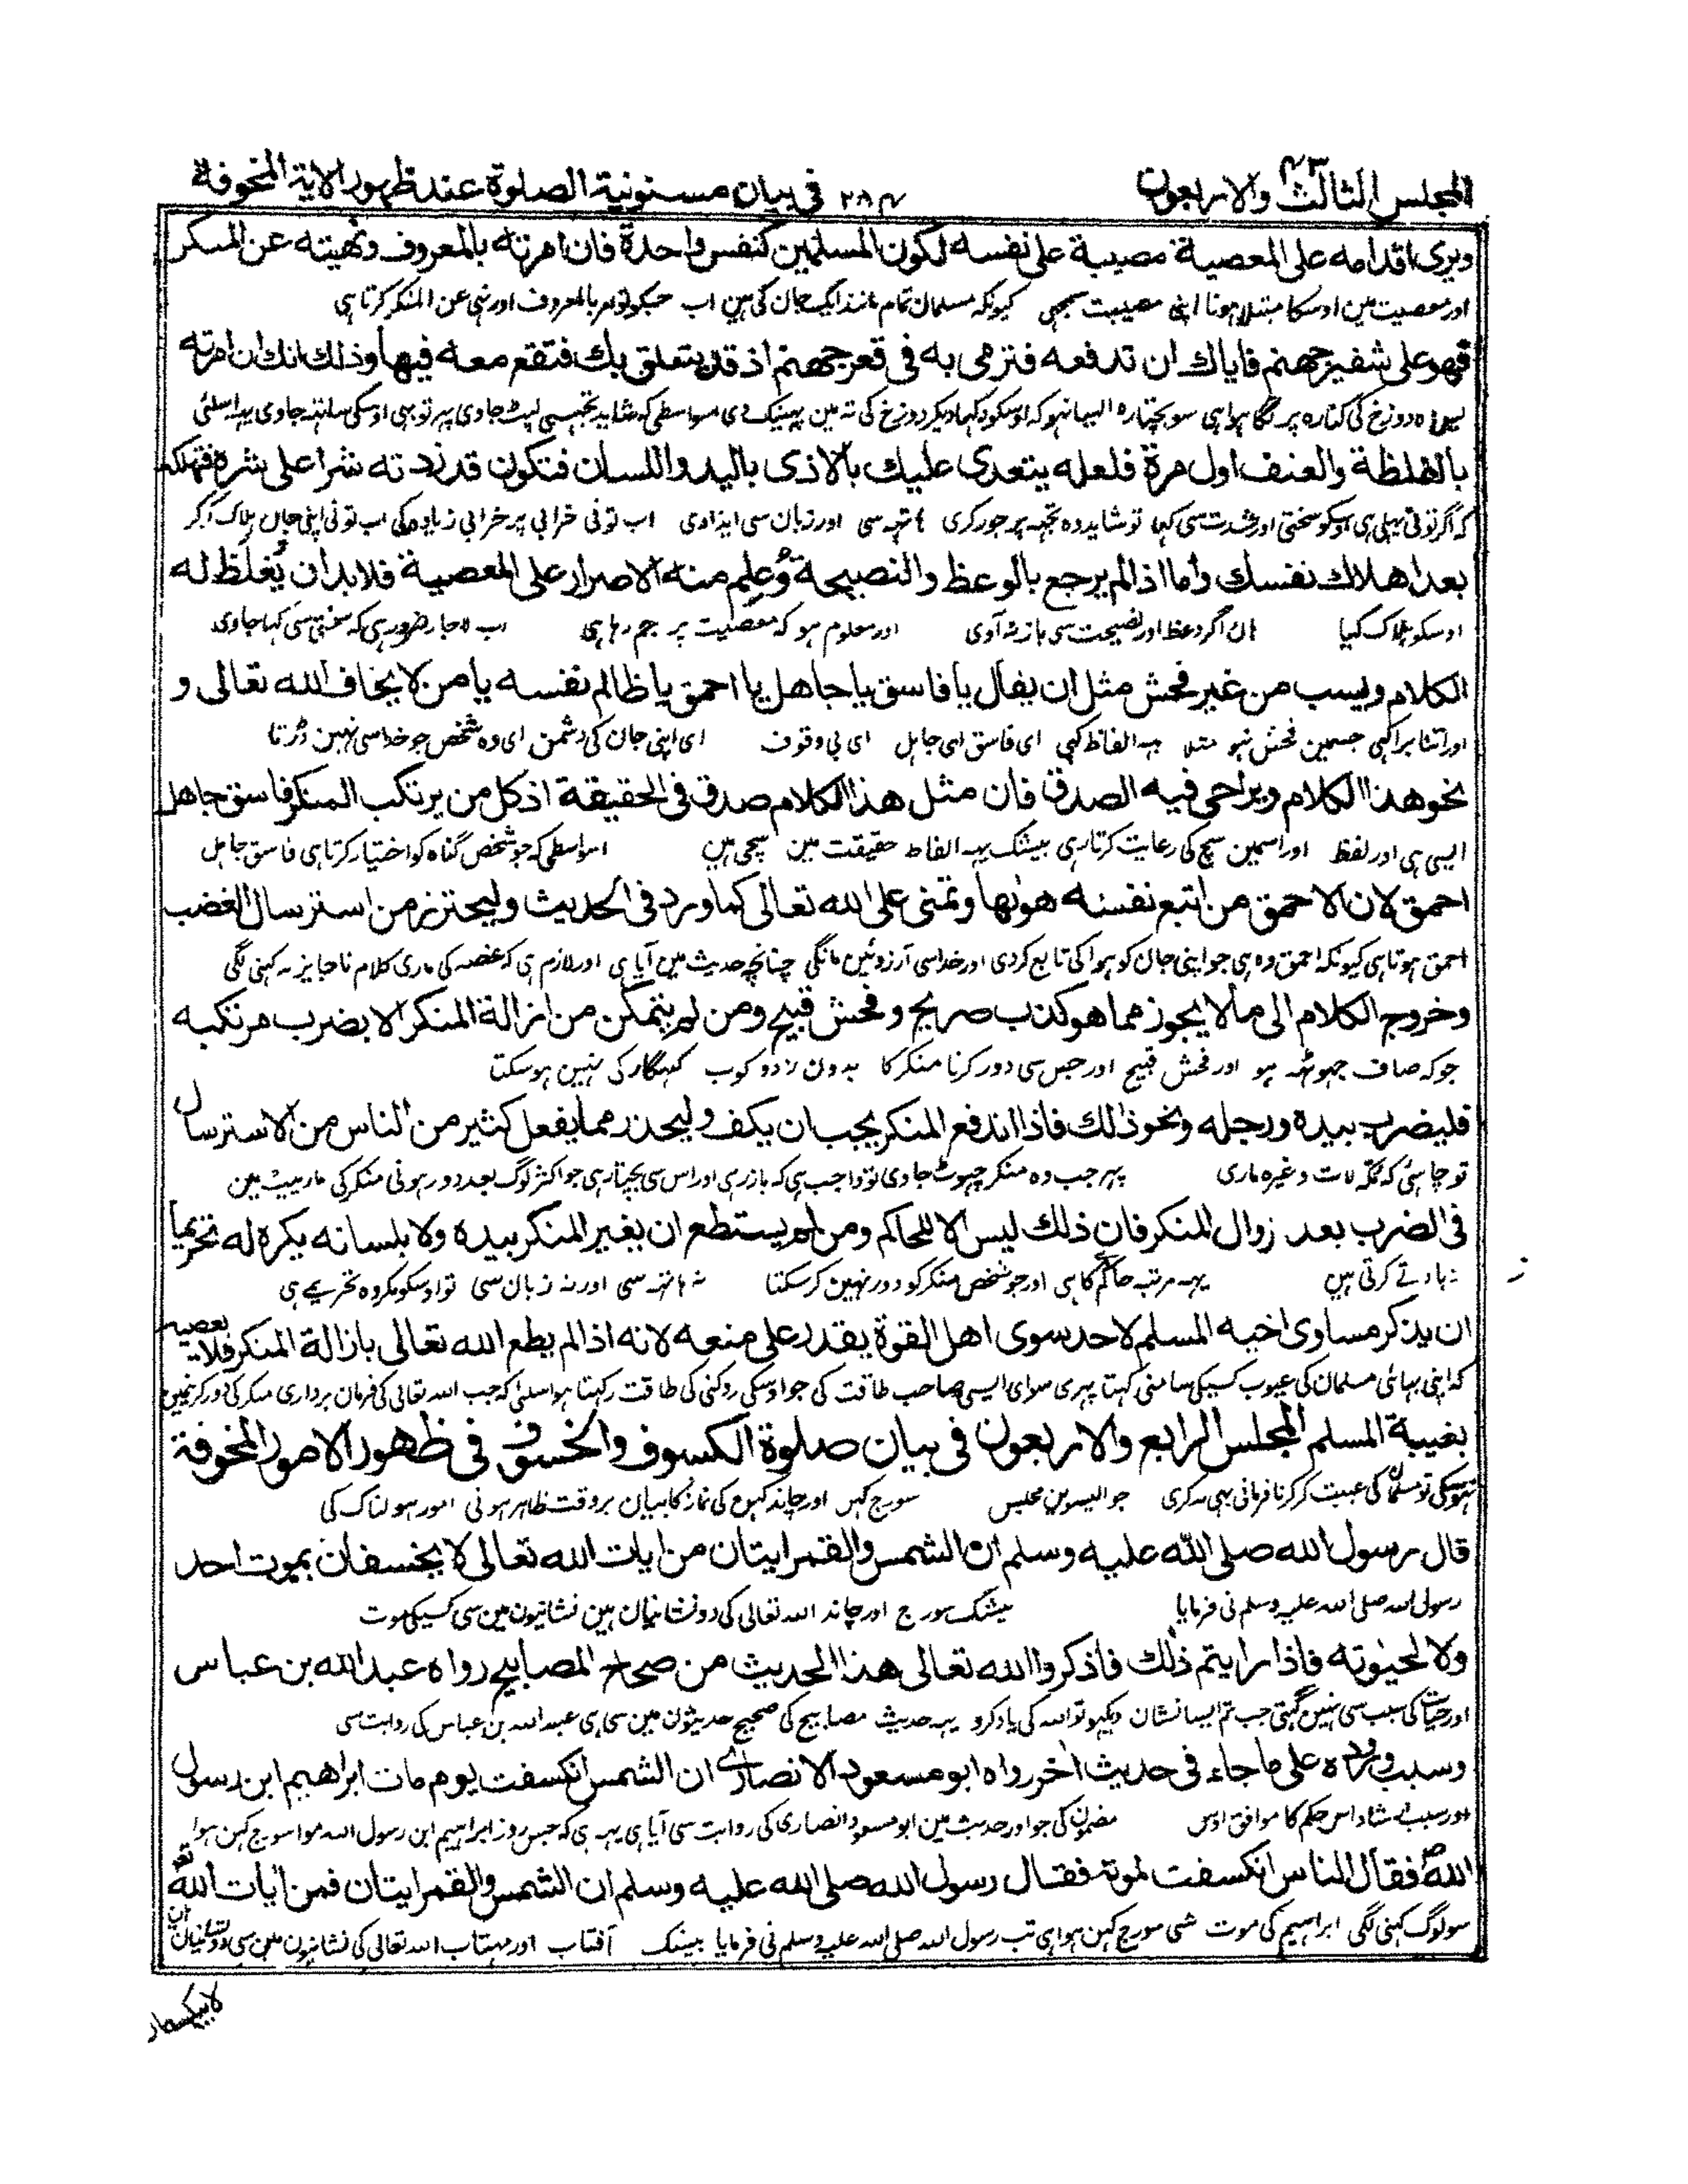 المجلس الثالث والاربعون ٤٣ ٢٨٤ فی بیان مسنونیة الصلوة عند ظهور الایة المخوفة
ویری اقدامه علی المعصیة مصیبة علی نفسه لکون المسلمین کنفس واحدة فان امرته بالمعروف ونهیته عن المنکر
اور معصیت مین اوسکا مبتلا ہونا اپنی مصیبت سمجہی کیونکہ مسلمان تمام مانند ایک جان کی ہین اب جبکو تو امر بالمعروف اور نہی عن المنکر کرتا ہی
فهو علی شفیر جهنم فایاك ان تدفعه فترمی به فی قعر جهنم اذ قد یتعلق بك فتقع معه فیها وذلك انك ان امرته
دوزخ کی کنارہ پر لگا ہوا ہی سو بچتارہ ایسا نہو کہ اوسکو دیکر دوزخ کی تہ مین پہینک دی اسواسطی کہ شاید تجہسی لپٹ جاوی پہر تو بہی اوسکی ساتہہ جاوی یہ اسلئی
بالغلظة والعنف اول مرة فلعله یتعدی علیك بالاذی بالید واللسان فتکون قد زدته شرا علی شره فتهلکه
کہ اگر تونی پہلی ہی اوسکو سختی اور شدت سی کہا تو شاید وہ تجہہ پر جور کری ہاتہہ سی اور زبان سی ایذا دی اب تونی خرابی پر خرابی زیادہ کی اب تونی اپنی جان ہلاک کر
بعد اهلاك نفسك واما اذا لم یرجع بالوعظ والنصیحة وعلم منه الاصرار علی المعصیة فلابد ان یغلظ له
اوسکو ہلاک کیا ہان اگر وعظ اور نصیحت سی باز نہ آوی اور معلوم ہو کہ معصیت پر جم رہا ہی اب لاجار ضرور ہی کہ سختی سی کہا جاوی
الکلام ویسب من غیر فحش مثل ان یقال یا فاسق یا جاهل یا احمق یا ظالم نفسه یا من لا یخاف الله تعالی و
اور اتنا برا کہی جسمین فحش نہو مثلا یہہ الفاظ کہی ای فاسق ای جاہل ای بی وقوف ای اپنی جان کی دشمن ای وہ شخص جو خدا سی نہین ڈرتا
نحو هذا الکلام ویراعی فیه الصدق فان مثل هذا الکلام صدق فی الحقیقة اذ کل من یرتکب المنکر فاسق جاهل
ایسی ہی اور لفظ اور اسمین سچ کی رعایت کرتا رہی بیشک یہہ الفاظ حقیقت مین سچی ہین اسواسطی کہ جو شخص گناہ کو اختیار کرتا ہی فاسق جاہل
احمق لان الاحمق من اتبع نفسه هوٰىها وتمنی علی الله تعالی کما ورد فی الحدیث ولیحترز من استرسال الغضب
احمق ہوتا ہی کیونکہ احمق وہ ہی جو اپنی جان کو ہوا کی تابع کردی اور خدا سی آرزوئین مانگی چنانچہ حدیث مین آیا ہی اور لازم ہی کہ غضہ کی ماری کلام ناجایز نہ کہنی لگی
وخروج الکلام الی ما لا یجوز مما هو کذب صریح وفحش قبیح ومن لم یتمکن من ازالة المنکر الا بضرب مرتکبه
جو کہ صاف جہوٹہہ ہو اور فحش قبیح اور جس سی دور کرنا منکر کا بدون زدو کوب گنہگار کی نہین ہو سکتا
فلیضرب بیده ورجله ونحو ذلك فاذا اندفع المنکر یجب ان یکف ولیحذر مما یفعل کثیر من الناس من الاسترسال
تو چاہئی کہ مکہ لات وغیرہ ماری پہر جب وہ منکر چہوٹ جاوی تو واجب ہی کہ باز رہی اور اس سی بچتا رہی جو اکثر لوگ بعد دور ہونی منکر کی مار پیٹ مین
فی الضرب بعد زوال المنکر فان ذلك لیس الا للحاکم ومن لم یستطع ان یغیر المنکر بیده ولا بلسانه یکره له تحریما
زیادتے کرتی ہین یہہ مرتبہ حاکم کا ہی اور جو شخص منکر کو دور نہین کر سکتا نہ ہاتہہ سی اور نہ زبان سی تو اوسکو مکروہ تحریمے ہی
ان یذکر مساوی اخیه المسلم لاحد سوی اهل القوة یقدر علی منعه لانه اذا لم یطع الله تعالی بازالة المنکر فلا یعصیه
کہ اپنی بہائی مسلمان کی عیوب کسیکی سامنی کہتا پہری سوای ایسی صاحب طاقت کی جو اوسکی روکنی کی طاقت رکہتا ہو اسلئی کہ جب اللہ تعالی کی فرمان برداری منکر کی دور کرنیمین
بغیبة المسلم المجلس الرابع والاربعون فی بیان صلوة الکسوف والخسوف فی ظهور الامور المخوفة
نہوسکی تو مسلمان کی غیبت کر کر نافرمانی بہی نہ کری چوالیسوین مجلس سورج گہن اور چاند گہن کی نماز کا بیان بروقت ظاہر ہونی امور ہولناک کی
قال رسول الله صلی الله علیه وسلم ان الشمس والقمر ایتان من ایات الله تعالی لا یخسفان بموت احد
رسول اللہ صلی اللہ علیہ وسلم نی فرمایا بیشک سورج اور چاند اللہ تعالی کی دو نشانیان ہین نشانیون مین سی کسیکی موت
ولا لحیوته فاذا رایتم ذلك فاذکروا الله تعالی هذا الحدیث من صحاح المصابیح رواه عبد الله بن عباس
اور حیات کی سبب سی نہین گہتی جب تم ایسا نشان دیکہو تو اللہ کی یاد کرو یہہ حدیث مصابیح کی صحیح حدیثون مین سی ہی عبد اللہ بن عباس کی روایت سی
وسبب وروده علی ما جاء فی حدیث اٰخر رواه ابو مسعود الانصاری ان الشمس انکسفت یوم مات ابراهیم ابن رسول
اور سبب ارشاد اس حکم کا موافق اوس مضمون کی جو اور حدیث مین ابو مسعود انصاری کی روایت سی آیا ہی یہہ ہی کہ جس روز ابراہیم ابن رسول اللہ موا سورج گہن ہوا
الله ص فقال الناس انکسفت لموته فقال رسول الله صلی الله علیه وسلم ان الشمس والقمر ایتان فمن ایات الله تعا
سو لوگ کہنی لگی ابراہیم کی موت سی سورج گہن ہوا ہی تب رسول اللہ صلی اللہ علیہ وسلم نی فرمایا بیشک آفتاب اور مہتاب اللہ تعالی کی نشانیون مین سی دو نشانیان
لا ینکسفان